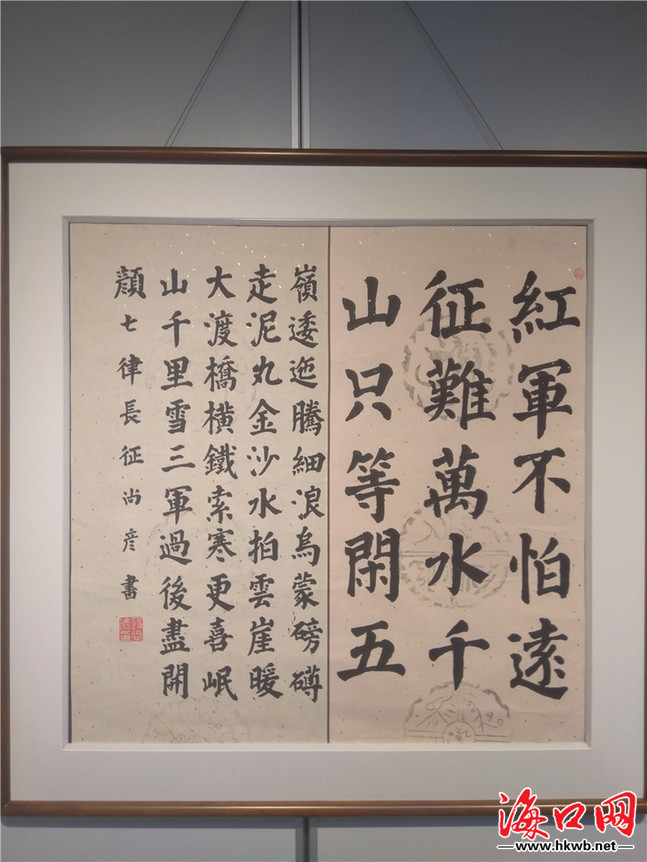 紅軍不怕遠
征難萬水千
山只等閑五
嶺逶迤騰細浪烏蒙磅礴
走泥丸金沙水拍雲崖暖
大渡橋橫鐵索寒更喜岷
山千里雪三軍過後盡開
顔七律長征尚彦書
海口网
www.hkwb.net